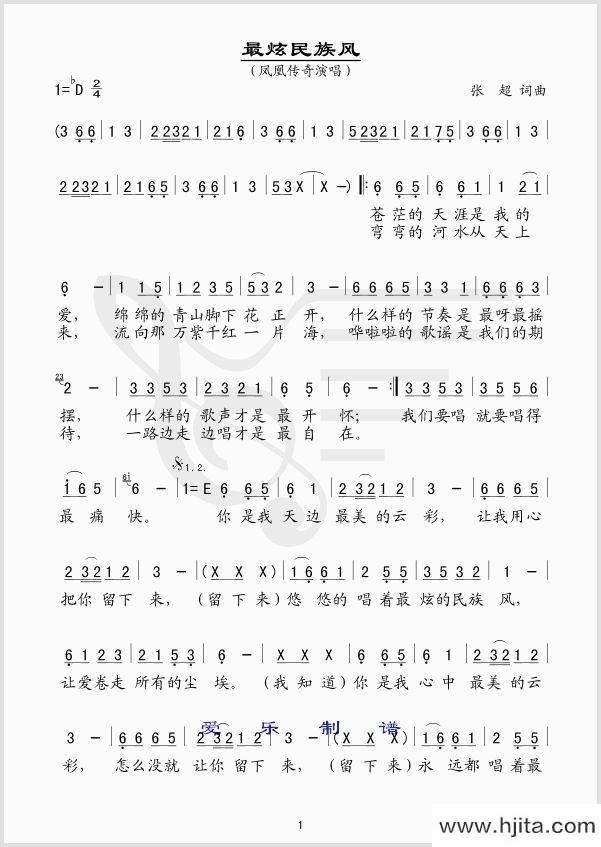 最炫民族风
（凤凰传奇演唱）
1=♭D 2/4 张 超 词曲
(3 6 6 | 1 3 | 2 2321 | 2 1 6 | 3 6 6 | 1 3 | 5 2321 | 2 1 7 5 | 3 6 6 | 1 3 |
2 2321 | 2 1 6 5 | 3 6 6 | 1 3 | 5 3 X | X −) ‖: 6 6 5 | 6 6 1 | 1 2 1 |
苍 茫的 天 涯是 我 的
弯 弯的 河 水从 天 上
6 − | 1 1 5 | 1 2 3 5 | 5 3 2 | 3 − | 3 1 6 1 | 6 1 6 1 | 6 6 6 3 |
爱， 绵绵的 青山脚下 花 正 开， 什么样的 节奏是 最呀最摇
来， 流向那 万紫千红 一 片 海， 哗啦啦的 歌谣是 我们的期
23
2 − | 3 3 5 3 | 2 3 2 3 | 6 1 2 1 | 6 5 | 6 − :‖ 3 3 5 3 | 3 5 5 6 |
摆， 什么样的 歌声才是 最 开 怀； 我们要唱 就要唱得
待， 一路边走 边唱才是 最 自 在。
1 6 5 | 6 − | 1=E 6 6 5 | 6 1 | 2 3 2 1 2 | 3 − | 6 6 6 5 |
1.2.
最 痛 快。 你 是我 天 边 最美的云 彩， 让我用心
2 3 2 1 2 | 3 − | (X X X) | 1 6 6 1 | 5 6 6 5 | 3 5 5 6 | 3 − |
把你 留下 来， （留 下 来）悠 悠的 唱着最 炫的民族 风，
6 1 2 3 | 2 1 5 3 | 6 − | (X X X) | 6 6 5 | 6 1 | 2 3 2 1 2 |
让爱卷走 所有的尘 埃。（我 知 道）你 是我 心 中 最美的云
3 − | 6 6 6 5 | 2 3 2 1 2 | 3 − | (X X X) | 1 6 6 1 | 5 6 6 5 |
爱 乐 制 谱
彩， 怎么没就 让你 留下 来，（留 下 来）永 远都 唱着最
1
www.hjita.com